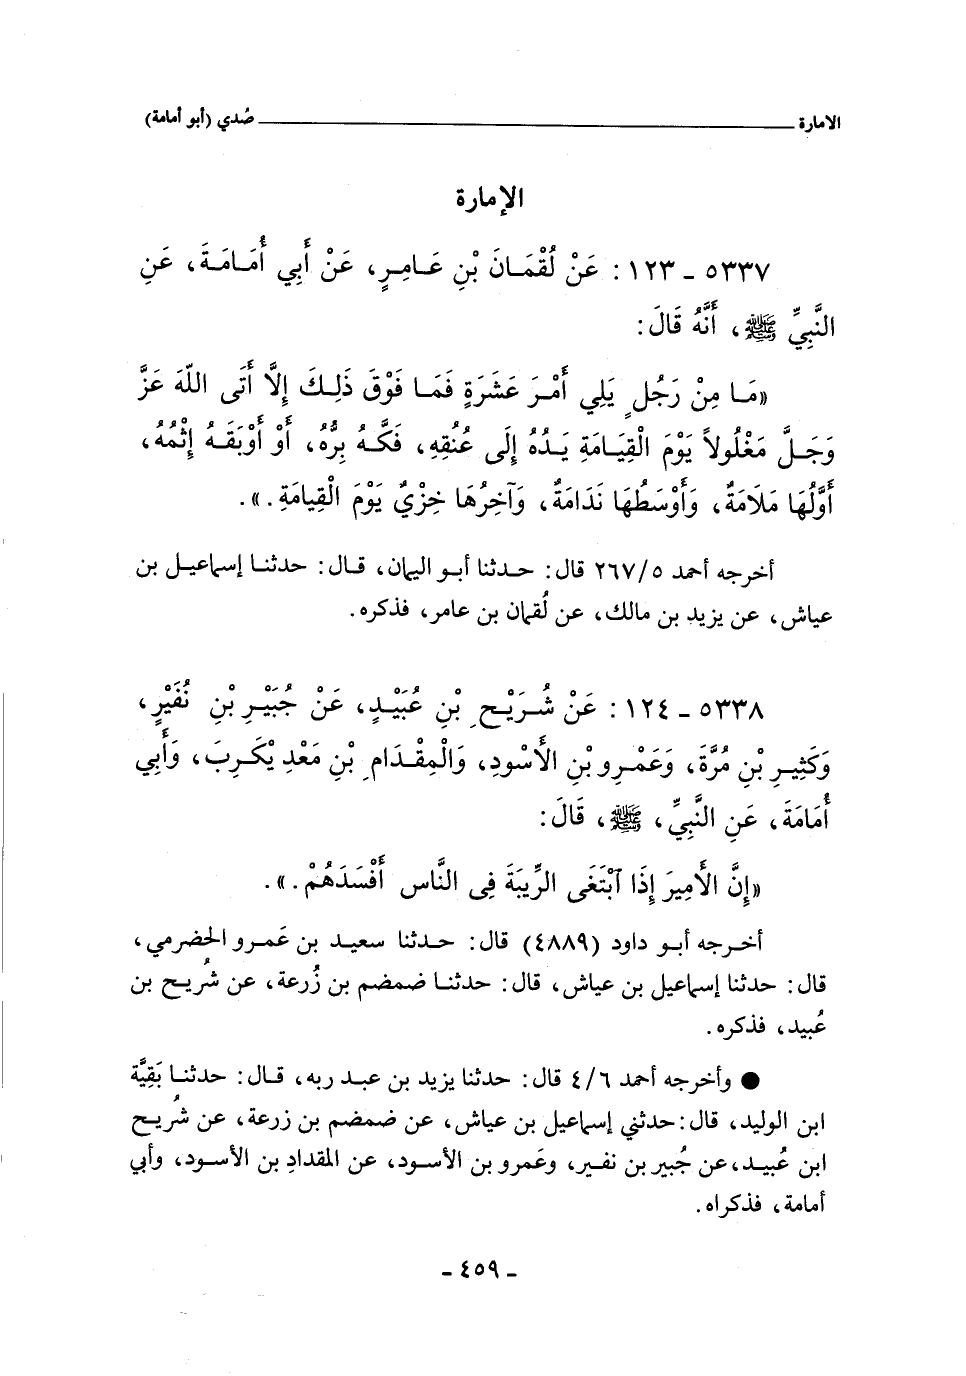 الامارة ــــــــــــــــــــــــ صُدي (أبو أمامة)
الإمارة
٥٣٣٧ ـ ١٢٣ : عَنْ لُقْمَانَ بْنِ عَامِرٍ، عَنْ أَبِي أُمَامَةَ، عَنِ
النَّبِيِّ ﷺ، أَنَّهُ قَالَ:
«مَا مِنْ رَجُلٍ يَلِي أَمْرَ عَشَرَةٍ فَمَا فَوْقَ ذَلِكَ إِلَّا أَتَى اللّهَ عَزَّ
وَجَلَّ مَغْلُولاً يَوْمَ الْقِيَامَةِ يَدُهُ إِلَى عُنُقِهِ، فَكَّهُ بِرُّهُ، أَوْ أَوْبَقَهُ إِثْمُهُ،
أَوَّلُهَا مَلَامَةٌ، وَأَوْسَطُهَا نَدَامَةٌ، وَآخِرُهَا خِزْيٌ يَوْمَ الْقِيامَةِ.».
أخرجه أحمد ٢٦٧/٥ قال: حدثنا أبو اليمان، قال: حدثنا إسماعيل بن
عياش، عن يزيد بن مالك، عن لُقمان بن عامر، فذكره.
٥٣٣٨ ـ ١٢٤ : عَنْ شُرَيْحِ بْنِ عُبَيْدٍ، عَنْ جُبَيْرِ بْنِ نُفَيْرٍ،
وَكَثِيرِ بْنِ مُرَّةَ، وَعَمْرِو بْنِ الأَسْودِ، وَالْمِقْدَامِ بْنِ مَعْدِيْكَرِبَ، وَأَبِي
أُمَامَةَ، عَنِ النَّبِيِّ، ﷺ، قَالَ:
«إِنَّ الأَمِيرَ إِذَا ٱبْتَغَى الرِّيبَةَ فِى النَّاسِ أَفْسَدَهُمْ.».
أخرجه أبو داود (٤٨٨٩) قال: حدثنا سعيد بن عَمرو الحضرمي،
قال: حدثنا إسماعيل بن عياش، قال: حدثنا ضمضم بن زُرعة، عن شُريح بن
عُبيد، فذكره.
● وأخرجه أحمد ٤/٦ قال: حدثنا يزيد بن عبد ربه، قال: حدثنا بَقِيَّة
ابن الوليد، قال: حدثني إسماعيل بن عياش، عن ضمضم بن زرعة، عن شُريح
ابن عُبيد، عن جُبير بن نفير، وعَمرو بن الأسود، عن المقدادِ بن الأسود، وأبي
أمامة، فذكراه.
ـ ٤٥٩ ـ